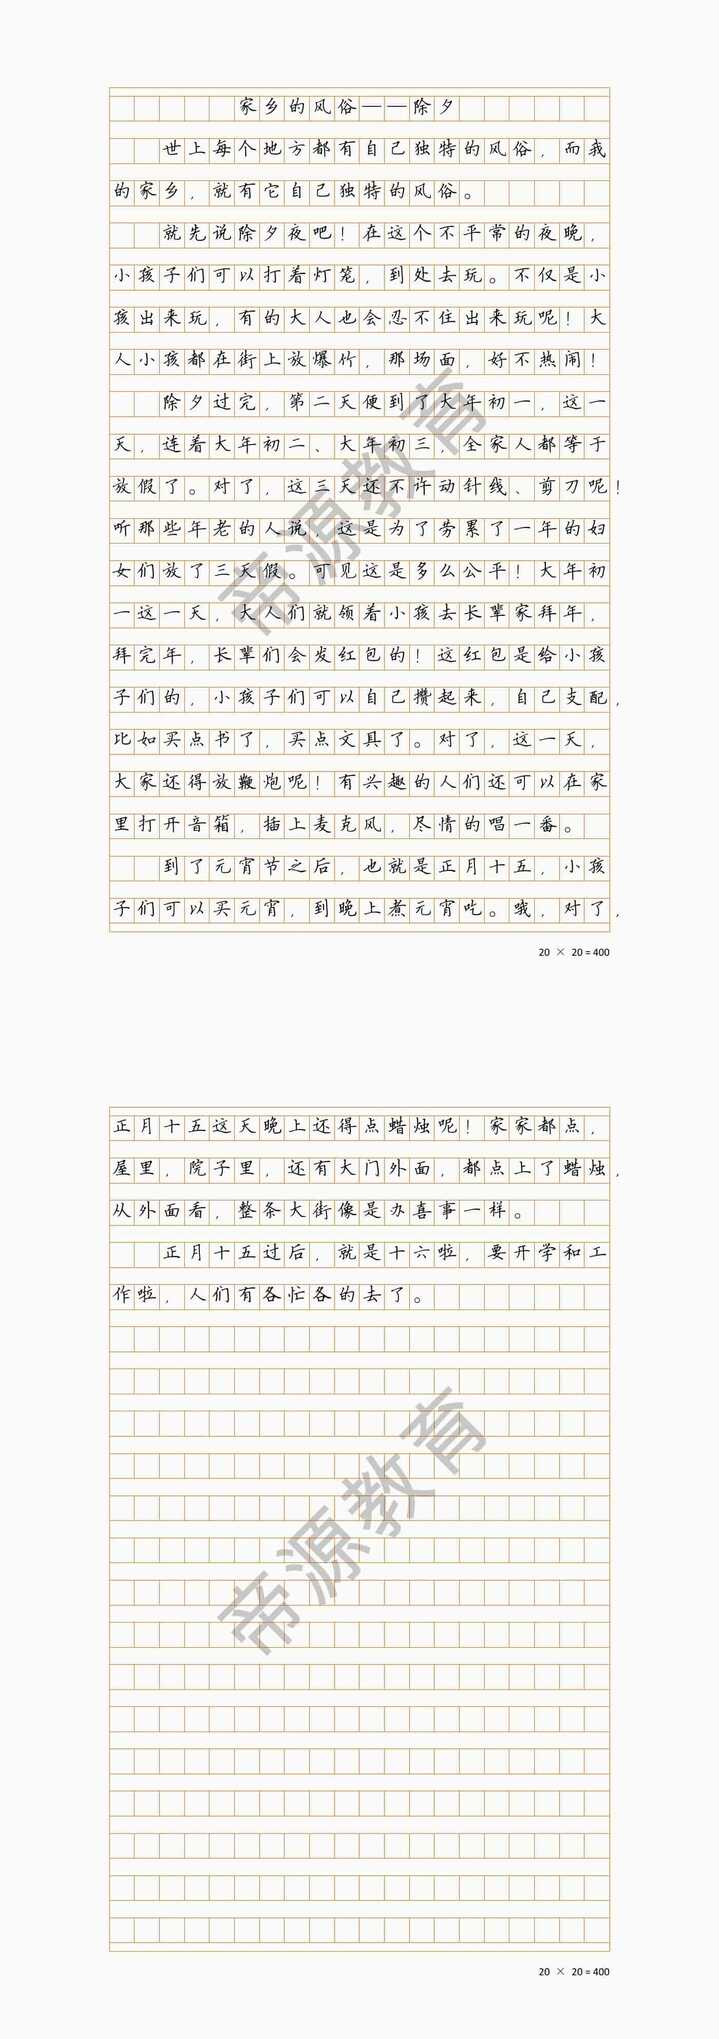 家乡的风俗——除夕
世上每个地方都有自己独特的风俗，而我
的家乡，就有它自己独特的风俗。
就先说除夕夜吧！在这个不平常的夜晚，
小孩子们可以打着灯笼，到处去玩。不仅是小
孩出来玩，有的大人也会忍不住出来玩呢！大
人小孩都在街上放爆竹，那场面，好不热闹！
除夕过完，第二天便到了大年初一，这一
天，连着大年初二、大年初三，全家人都等于
放假了。对了，这三天还不许动针线、剪刀呢！
听那些年老的人说，这是为了劳累了一年的妇
女们放了三天假。可见这是多么公平！大年初
一这一天，大人们就领着小孩去长辈家拜年，
拜完年，长辈们会发红包的！这红包是给小孩
子们的，小孩子们可以自己攒起来，自己支配，
比如买点书了，买点文具了。对了，这一天，
大家还得放鞭炮呢！有兴趣的人们还可以在家
里打开音箱，插上麦克风，尽情的唱一番。
到了元宵节之后，也就是正月十五，小孩
子们可以买元宵，到晚上煮元宵吃。哦，对了，
20 × 20 = 400
正月十五这天晚上还得点蜡烛呢！家家都点，
屋里，院子里，还有大门外面，都点上了蜡烛，
从外面看，整条大街像是办喜事一样。
正月十五过后，就是十六啦，要开学和工
作啦，人们有各忙各的去了。
20 × 20 = 400
帝源教育
帝源教育